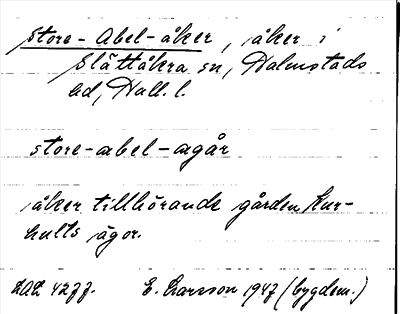 Store-Abel-åker, åker i
Slättåkra sn, Halmstads
hd, Hall. l.
store-abel-agår
åker tillhörande gården Kur-
hults ägor.
LAL 4277. E. Larsson 1947 (bygdem.)